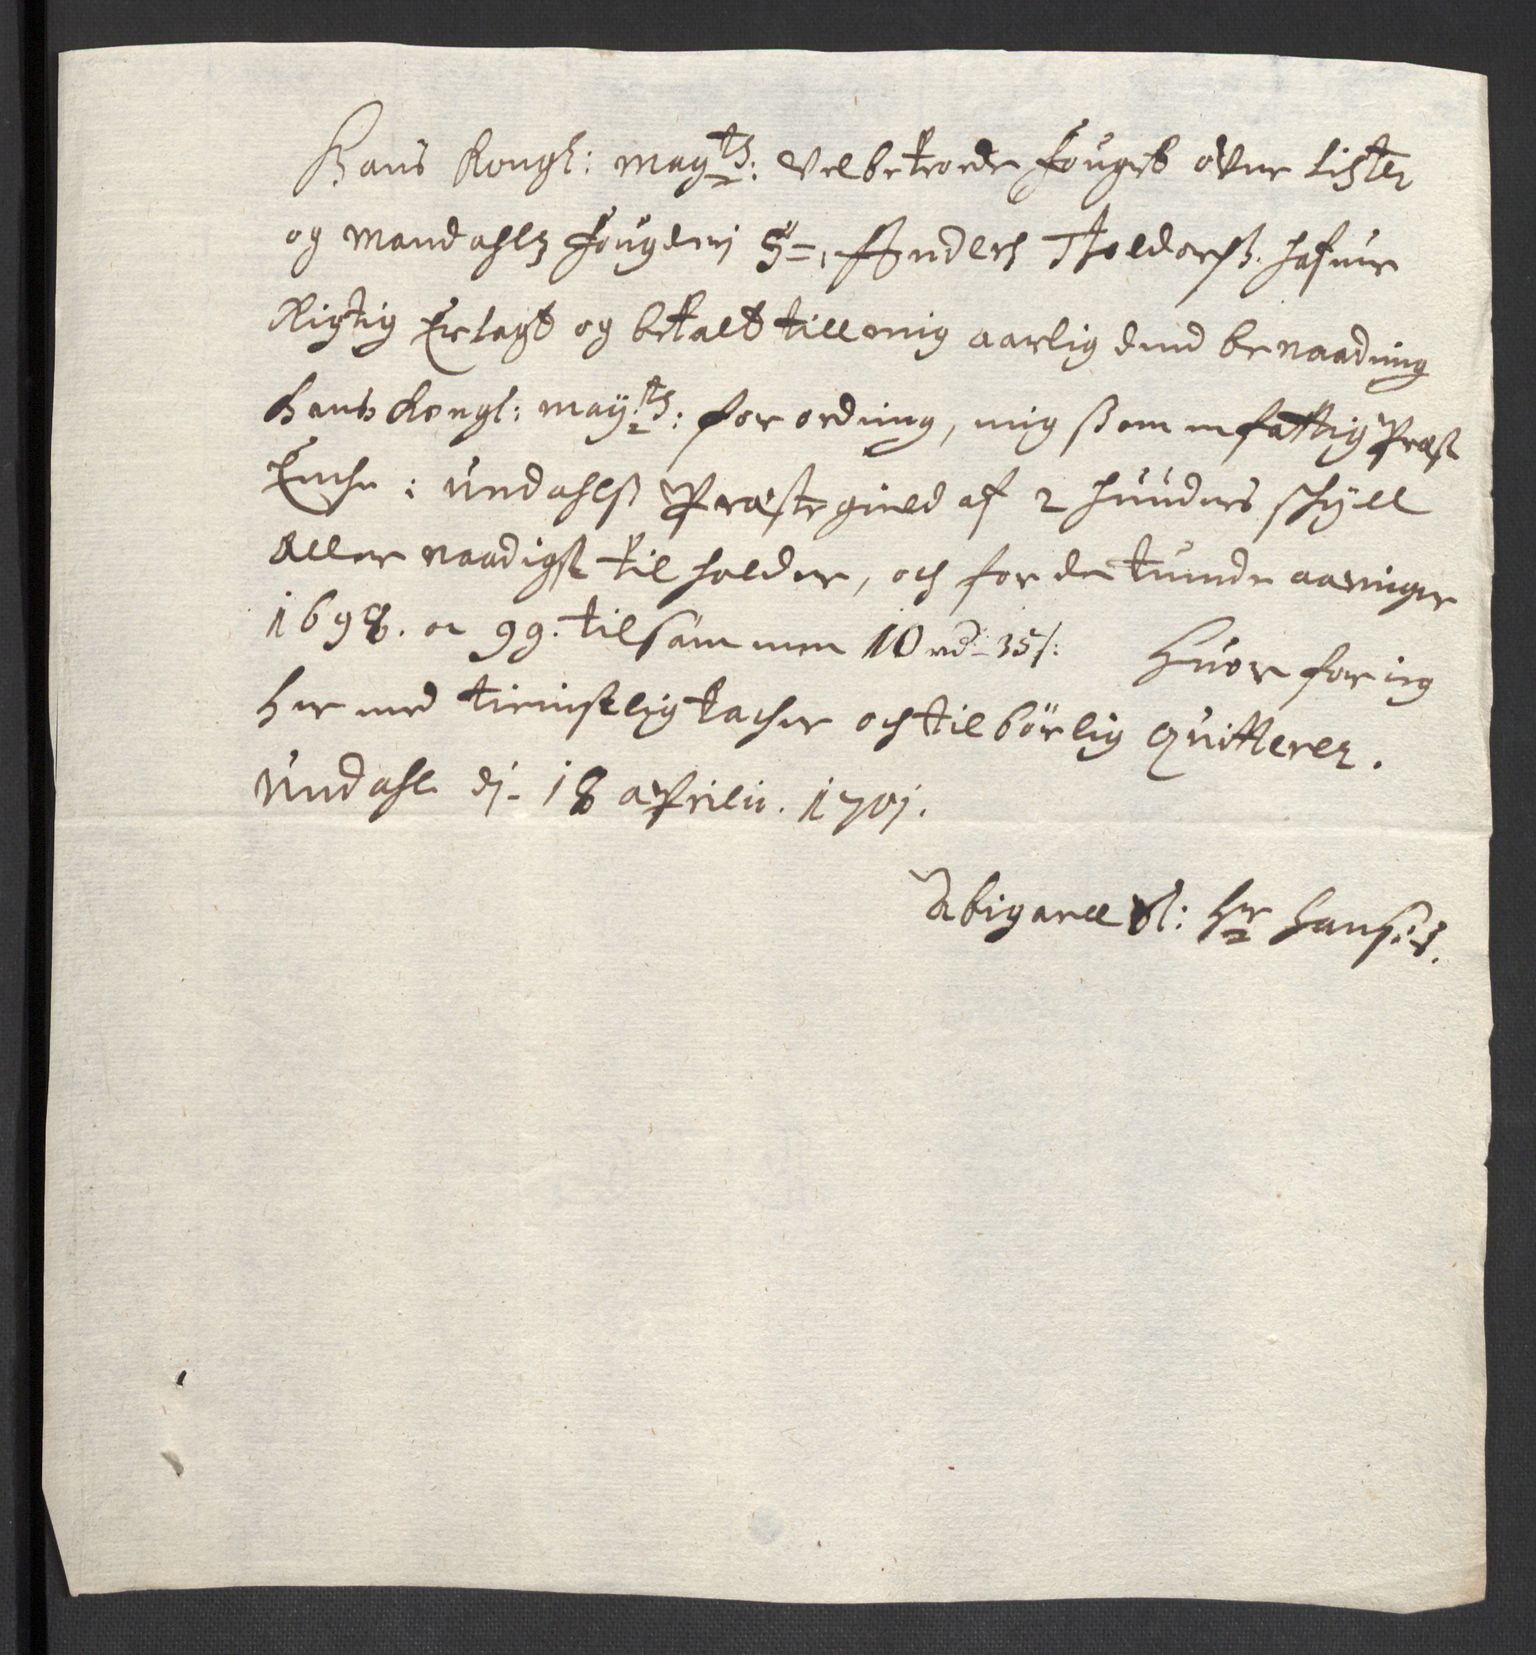 Hans Kongl: mayts: Velbetroede fouget ofuer Lister
og Mandahls fougderi Sr. Anders Toldorph. hafuer
Rigtig Erlagt og betalt till mig aarlig dend benaadning
hans Kongl: mayts: forordning, mig ßom en fattig Præst
Enche i undahlß Præstegield af 2 hunders schyll
Aller naadigst til holder, och for de tuende aaringer
1698. oc 99. tilsammen 10 rd 35 s: Huor for ieg
her med tienistlig tacher och tilbörlig quitterer.
Undahl dj. 18 aprilii. 1701.
Abigael Sl: Hr Hanses.